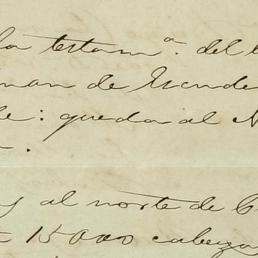 la testam.ª del
man de Escude
le: queda al N
y al norte de C
15000 cabeza